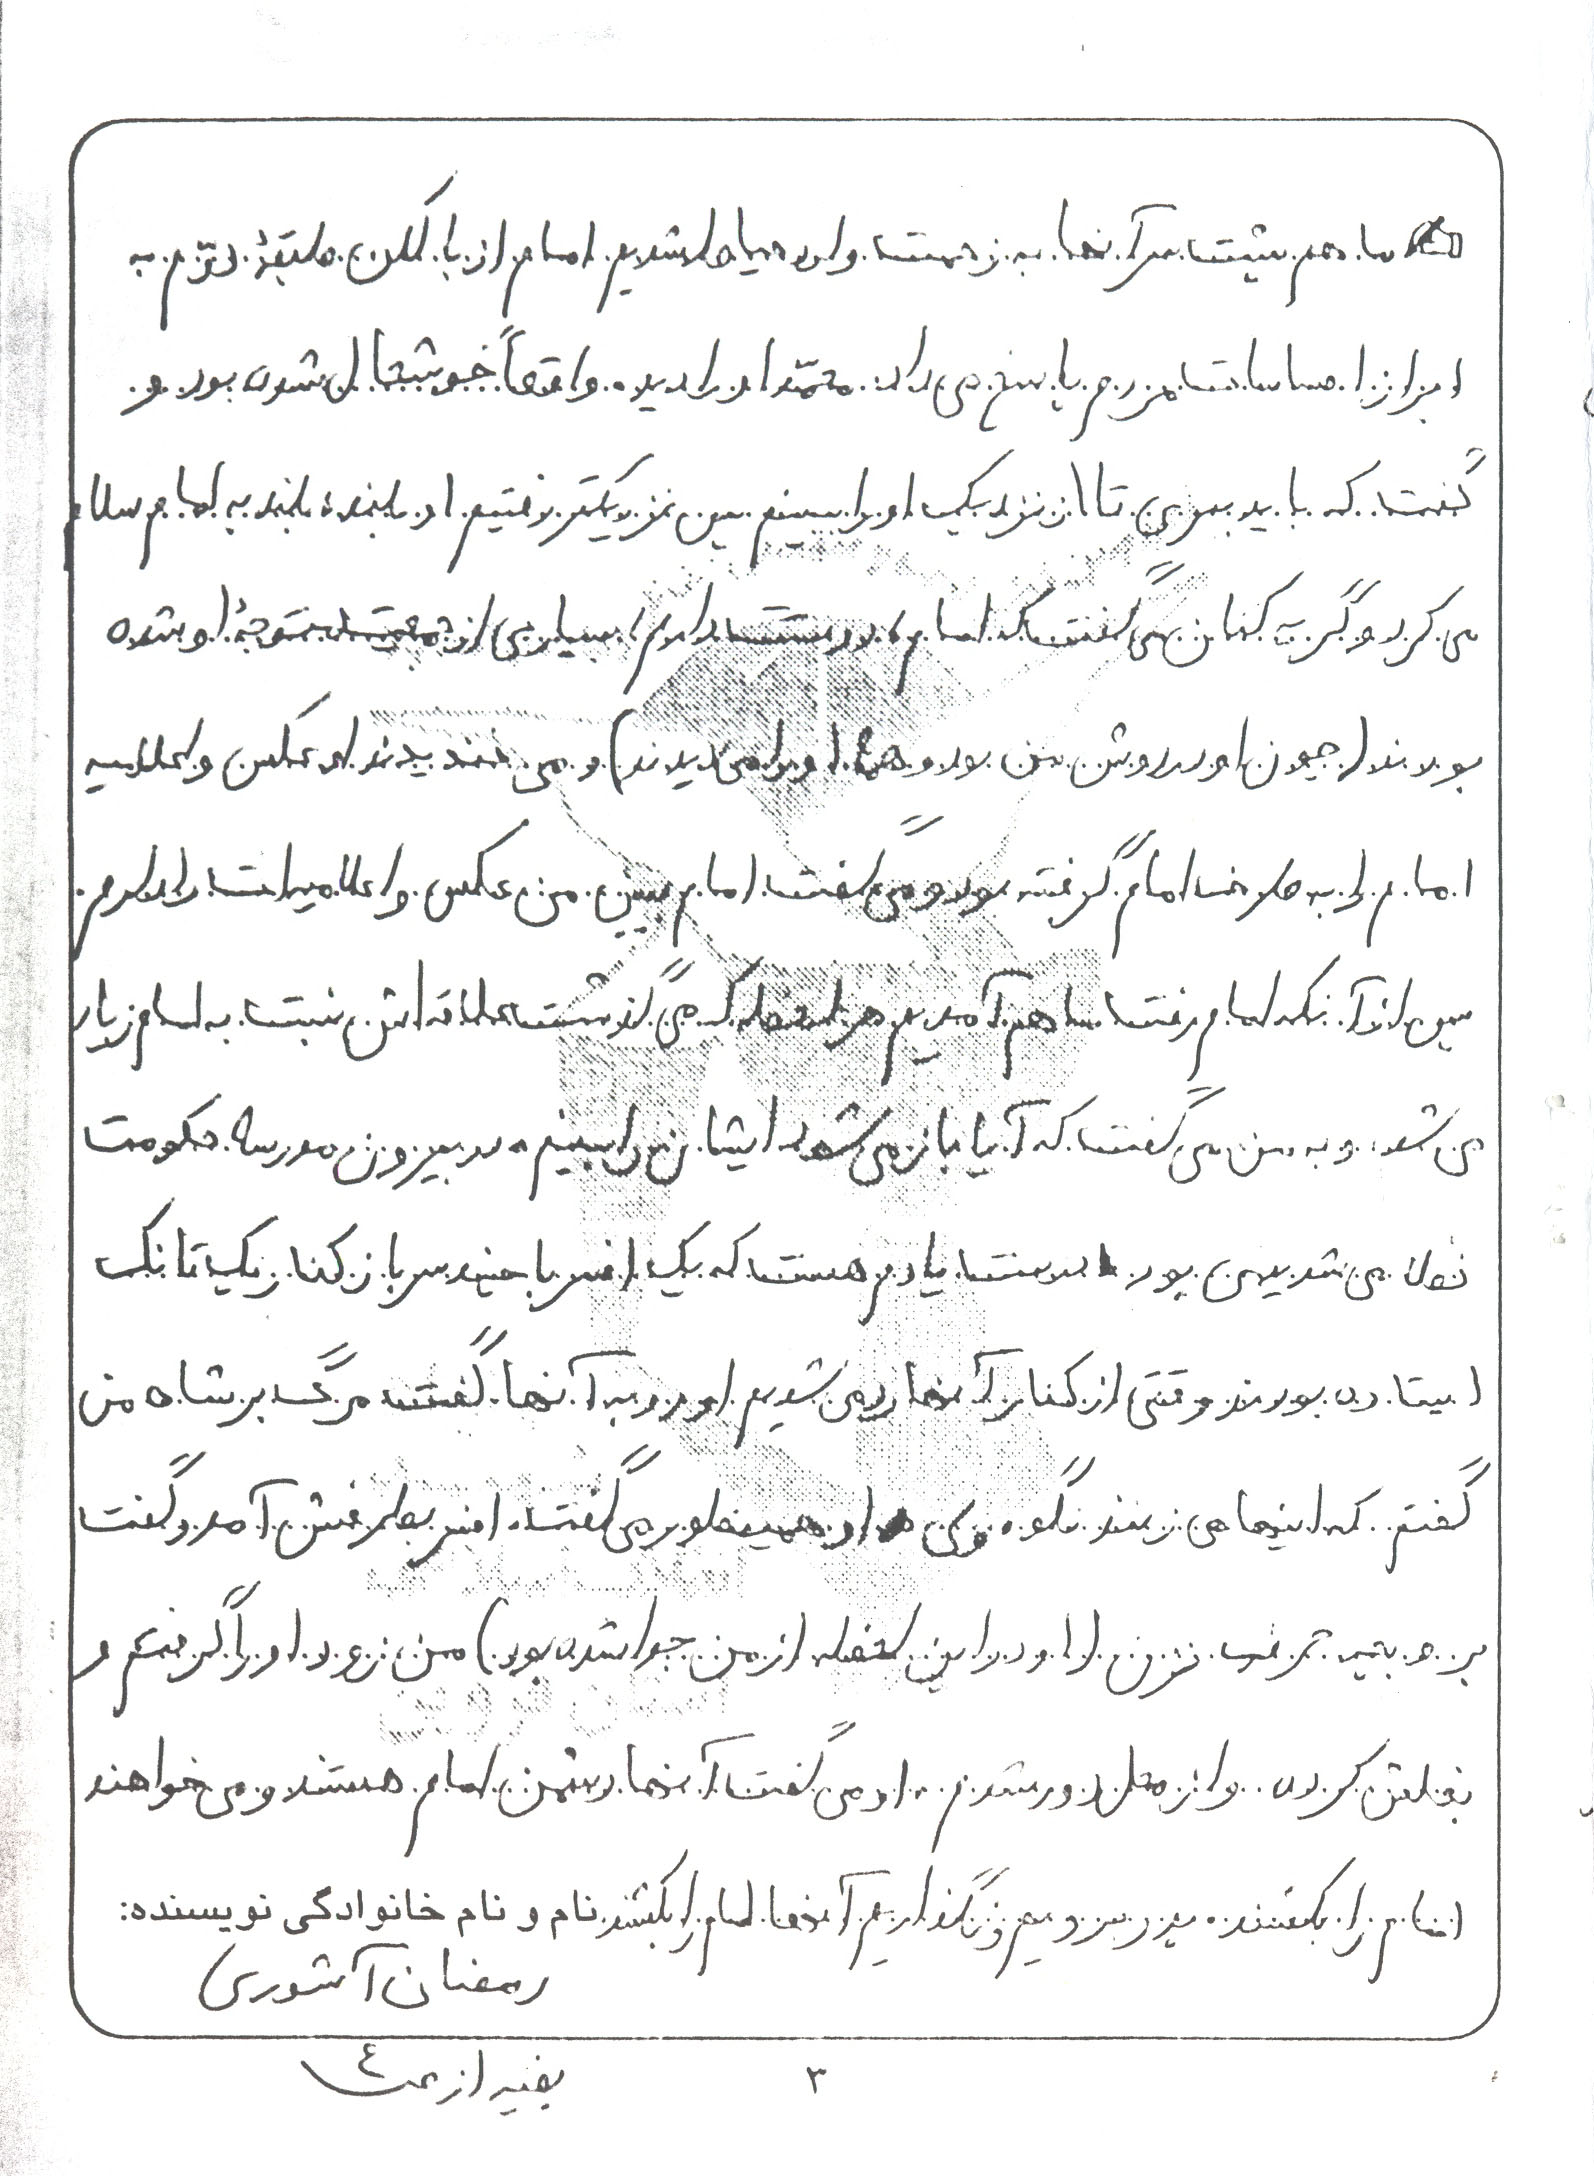 ما هم پشت سر آنها به زحمت وارد حیاط شدیم امام از بالکن طبقهٔ دوّم به
ابراز احساسات مردم پاسخ می داد. محمّد او را دیده واقعاً خوشحال شده بود و
گفت که باید برویم تا از نزدیک او را ببینم پس نزدیکتر رفتیم او بلند بلند به امام سلام
می کرد و گریه کنان می گفت که امام دوستت دارم، بسیاری از جمعیت متوجهٔ او شده
بودند (چون او در دوش من بود و همه او را می دیدند) و می خندیدند او عکس و اعلامیه
امام را به طرف امام گرفته بود و می گفت امام ببین من عکس و اعلامیه ات را دارم.
پس از آنکه امام رفت ما هم آمدیم هر لحظه که می گذشت علاقه اش نسبت به امام زیاد
می شد. و به من می گفت که آیا باز می شود ایشان را ببینم در بیرون مدرسه حکومت
نظامی شدیدی بود درست یادم هست که یک افسر با چند سرباز کنار یک تانک
ایستاده بودند وقتی از کنار آنها رد می شدیم او رو به آنها گفت مرگ بر شاه من
گفتم که اینها می زنند نگو ولی او همینطور می گفت. افسر بطرفش آمد و گفت
بچه حرف نزن (او در این لحظه از من جدا شده بود) من زود او را گرفتم و
بغلش کرده و از محل دور شدم. او می گفت آنها دشمن امام هستند و می خواهند
امام را بکشند. پدر برویم و نگذاریم آنها امام را بکشند نام و نام خانوادگی نویسنده:
رمضان آشوری
۳
بقیه از ص ٤